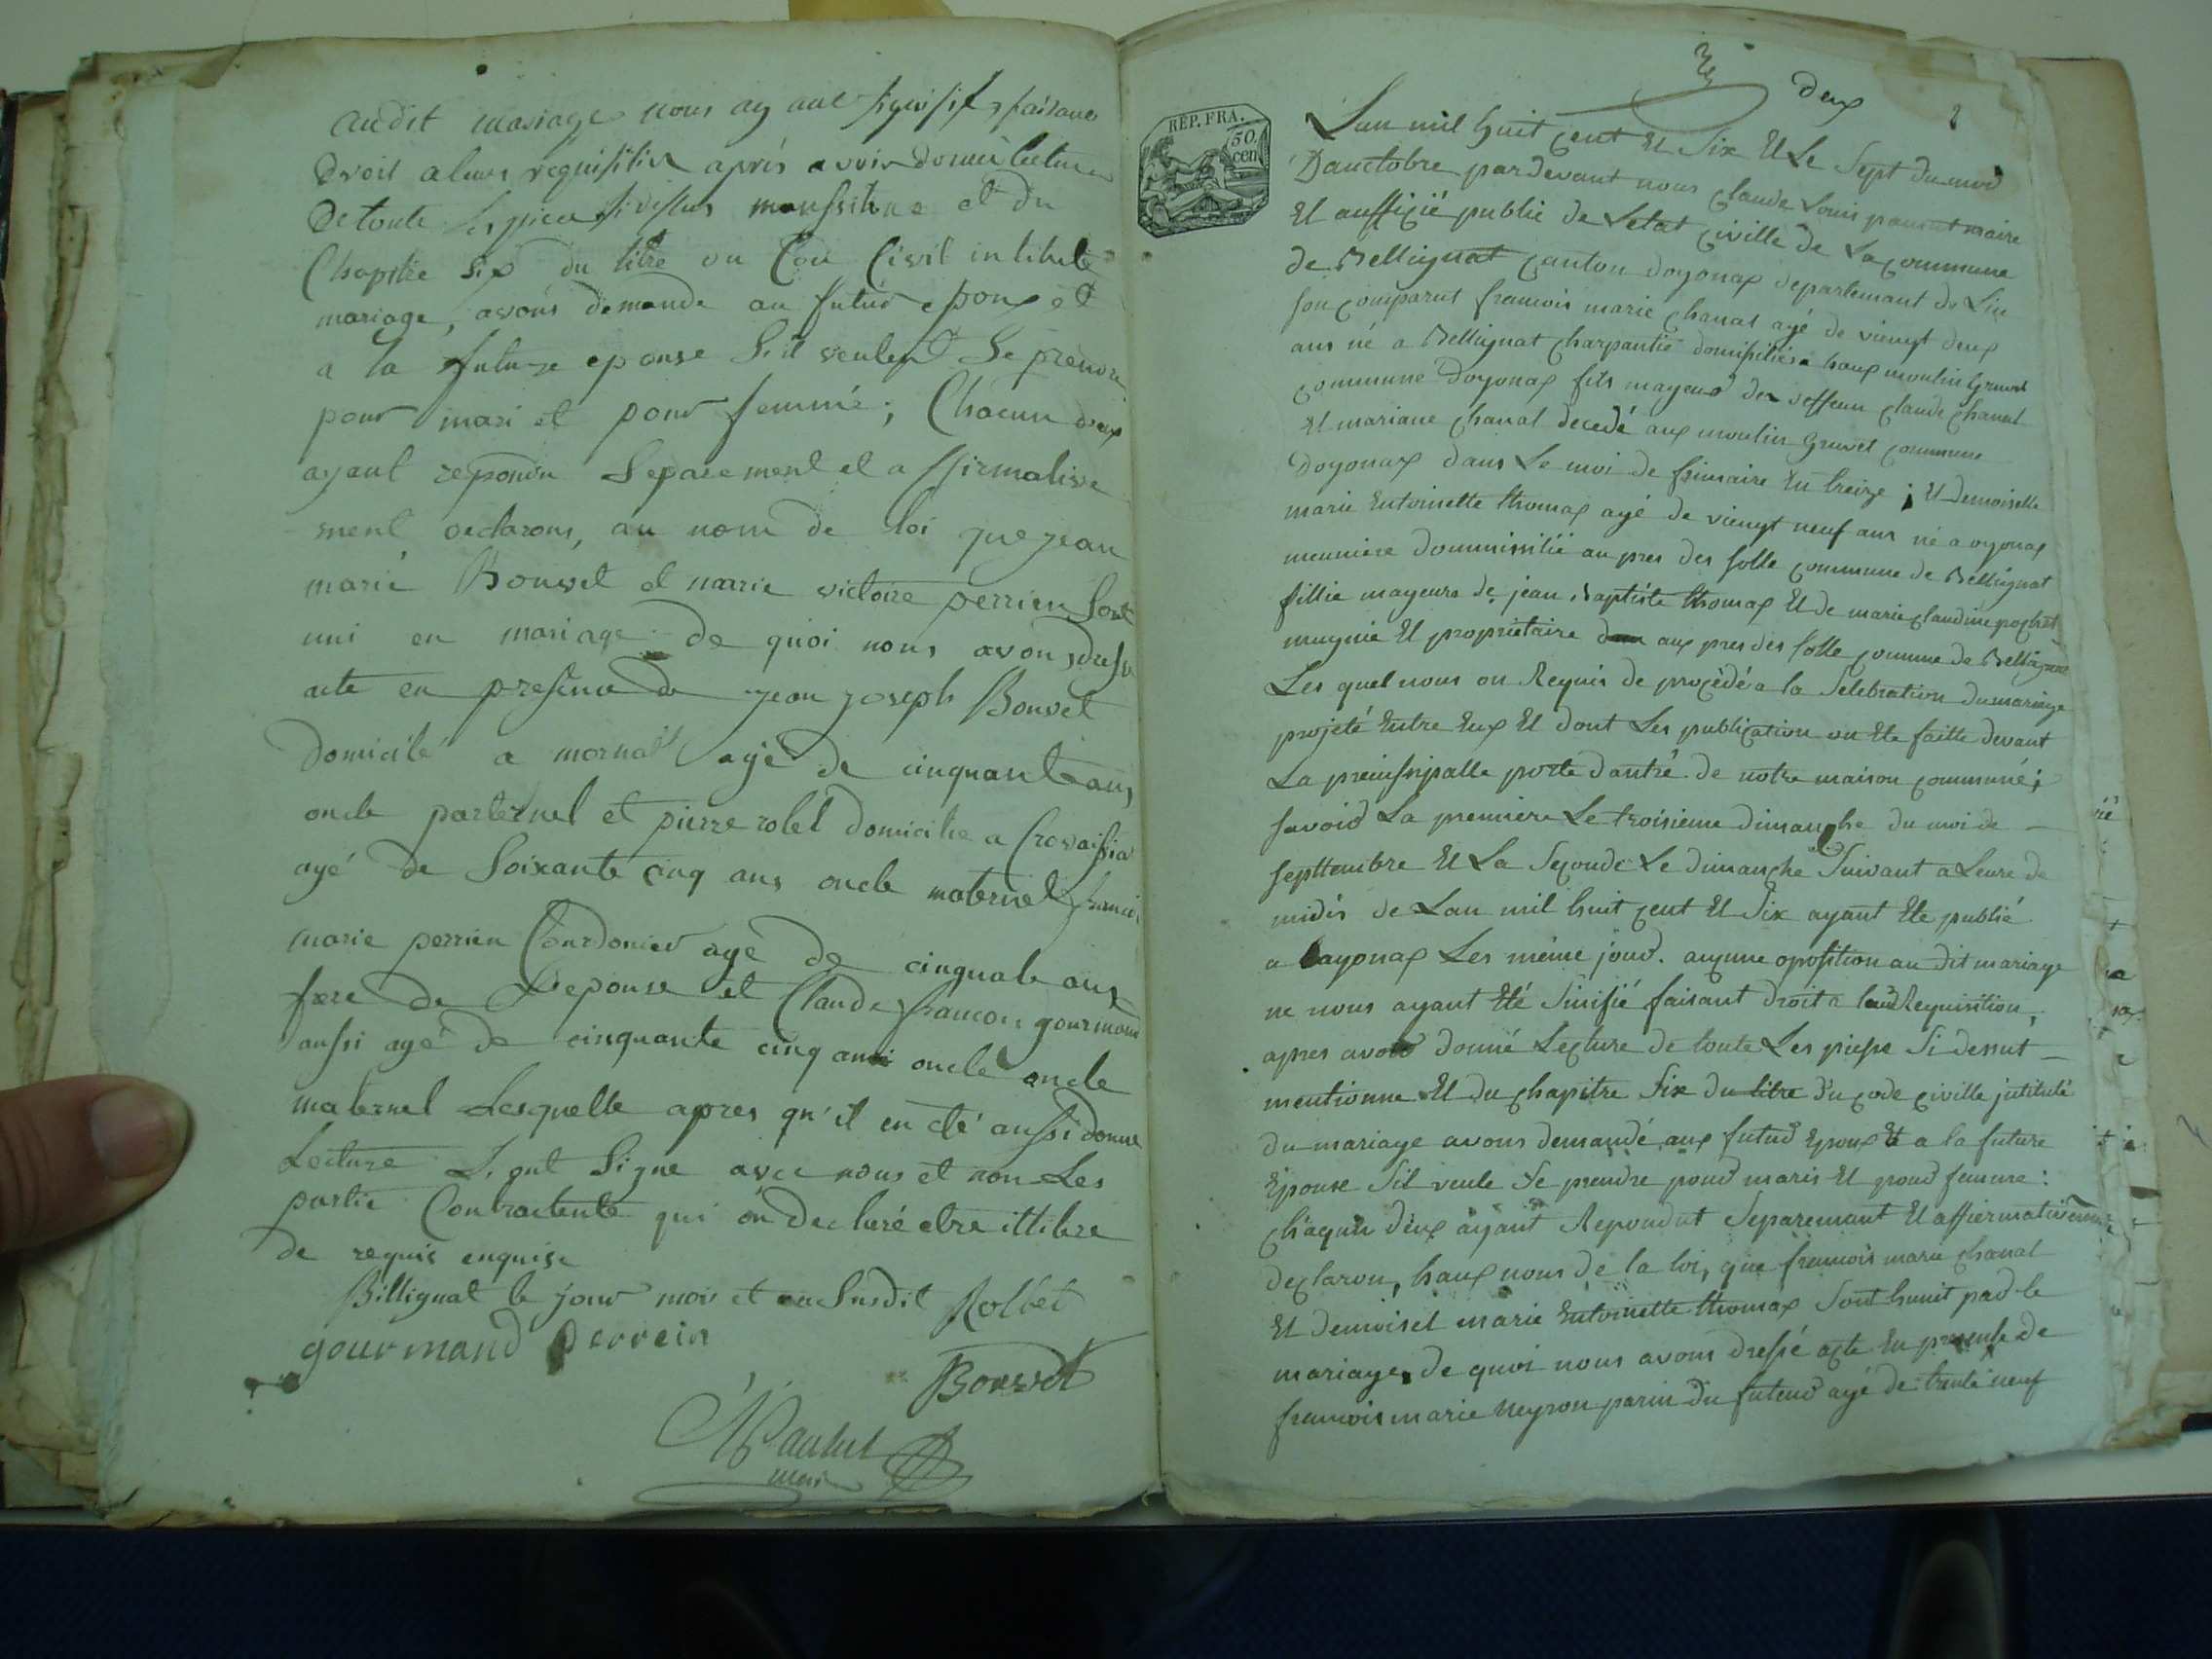 audit mariage nous ay ant faisant
droit a leurs requisition aprés avoir donné lecture
De toute Les piece si dessus et du
Chapitre six du titre du Code Civil intitulé
mariage, avons demande au futur epoux et
a la future epouse S'il veulent Se prendre
pour mari et pour femme; Chacun deux
ayant repondu Separement et affirmative
ment declarons, au nom de loi que jean
marie Bonvet et marie victoire perrien Sont
uni en mariage de quoi nous avons dressé
acte en presence de jean joseph Bonvet
Domicilé a mornat agé de cinquante ans
oncle parternel et pierre rolet domicilie a
agé de Soixante cinq ans oncle maternel francois
marie perrien Courdonier agé de cinquate ans
frere de L'epouse et Claude francois gourmand
aussi agé de cinquante cinq ans oncle oncle
maternel Lesquelle apres qu'il en été aussi donne
Lecture L. ont Signe avec nous et non Les
partie Contractente qui on declaré etre illitere
de requis enquise
Billignat le jour mois et an Susdit Rollet
gourmand perrein
Bonvet
Paulut
maire
deux
2
REP. FRA.
50.
cen
Lan mil huit cent Et Six Et Le Sept du moi
D'auctobre pardevant nous Claude Louis maire
Et auffigié public de Letat civille de La commune
de Bellignat canton doyonax departemant de Lin
son comparut francois marie chanal agé de viengt deux
ans né a Bellignat charpantié domisilié a haux moulin Gruvet
commune Doyonax fils mayeur de deffeun claude chanal
Et mariane chanal decedé aux moulin Gruvet commune
Doyonax dans Le moi de frimaire En treize; Et Demoiselle
marie Entoinette thomax agé de viengt neuf ans né a oyonax
meuniere doummissilié au pres des folle commune de Bellignat
fillie mayeure de jean Baptiste thomax Et de marie claudine pochet
mugnié Et proprietaire aux pres des folle comune de Bellignat
Les quel nous on Requis de procédé a la Selebration du mariage
projeté Entre Eux Et dont Les publication on Ete faitte devant
La prinssipalle porte dantré de notre maison communé;
savoir La premiere Le troisieme dimanche du moi de
septtembre Et La Segonde Le dimanche Suivant a Leure de
midis de Lan mil huit cent Et Six ayant Ete publié
a oayonax Les méme jour. aucunne oposition au dit mariage
ne nous ayant Eté Sinifié faisant droit a leur Requisition,
apres avoir donné Lecture de toute Les piesse Si dessut
mentionne Et du chapitre Six du titre du code civille jntitulé
du mariage avons demandé aux futur Epoux Et a la future
Epouse Sil veule Se prendre pour maris Et pour femme:
chaqun deux ayant Repondut Separemant Et affiermativemen
declaron, haux nons de la loi, que francois marie chanal
Et demoisel marie Entoinette thomax Sont hunit par le
mariage de quoi nous avons dressé acte En presense de
francois marie Neyron parin du futeur agé de trente neuf